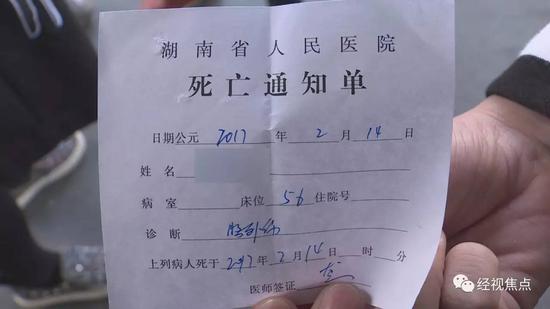 湖南省人民医院
死亡通知单
日期公元 2017 年 2 月 14 日
姓名
病室 床位 56 住院号
诊断 胸外伤
上列病人死于 2017 年 2 月 14 日 时 分
医师签证
经视焦点